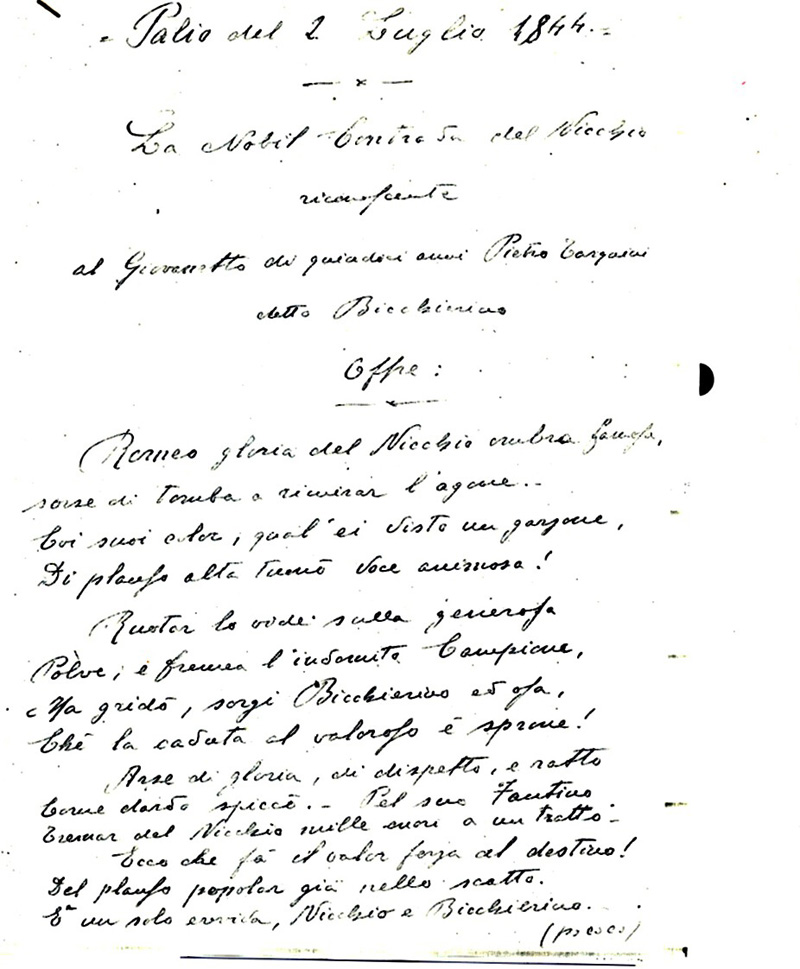 = Palio del 2 Luglio 1844. =
La Nobil Contrada del Nicchio
riconoscente
al Giovanetto di quindici anni Pietro
detto Bicchierino
Offre:
Romeo gloria del Nicchio ombra famosa,
sorse di tomba a rimirar l'agone..
Coi suoi color, qual'ei visto un garzone,
Di plauso alta tuonò voce animosa!
Ruotar lo vide sulla generosa
Pòlve; e fremea l'indomito Campione,
Ma gridò, sorgi Bicchierino ed osa,
Chè la caduta al valoroso è sprone!
Arse di gloria, di dispetto, e ratto
Come dardo spiccò. - Pel suo Fantino
Tremar del Nicchio mille cuori a un tratto -
Ecco che fà il valor forza al destino!
Del plauso popolar già nello scatto.
È un solo evviva, Nicchio e Bicchierino.